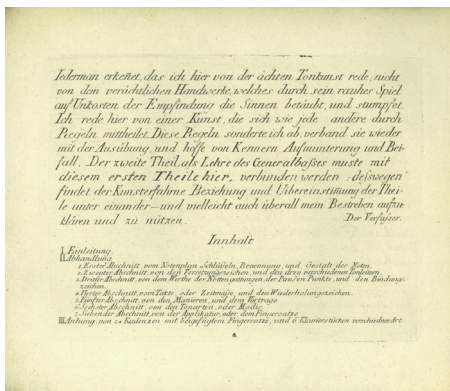 Iederman erkeñet, das ich hier von der ächten Tonkunst rede, nicht
von dem verächtlichen Handwerke, welches durch sein rauhes Spiel
auf Unkosten der Empfindung die Sinnen betäubt, und stumpfet.
Ich rede hier von einer Kunst, die sich wie jede andere durch
Regeln mittheilet. Diese Regeln sonderte ich ab, verband sie wieder
mit der Ausübung, und hoffe von Kennern Aufmunterung und Bei-
fall. Der zweite Theil, als Lehre des Generalbaßes muste mit
diesem ersten Theile hier, verbunden werden: desswegen
findet der Kunsterfahrne Beziehung und Uibereinstimung der Thei-
le unter einander — und vielleicht auch überall mein Bestreben aufzu-
klären und zu nützen. Der Verfasser.
Innhalt
I. Einleitung.
II. Abhandlung.
1. Erster Abschnitt, vom Notenplan Schlüsseln, Benennung, und Gestalt der Noten.
2. Zweiter Abschnitt, von den Versetzungszeichen, und den drey verschiedenen Tonleitern.
3. Dritter Abschnitt, von dem Werthe der Notengattungen, der Pausen, Punkte, und den Bindungs-
zeichen.
4. Vierter Abschnitt, vom Takte oder Zeitmaße, und den Wiederholungszeichen.
5. Fünfter Abschnitt, von den Manieren, und dem Vortrage
6. Sechster Abschnitt, von den Tonarten oder Modis.
7. Siebender Abschnitt, von der Applikatur, oder dem Fingersatze
III. Anhang, von 24 Kadenzen mit beigefügtem Fingersatze, und 6 Klavierstücken verschiedner Art.